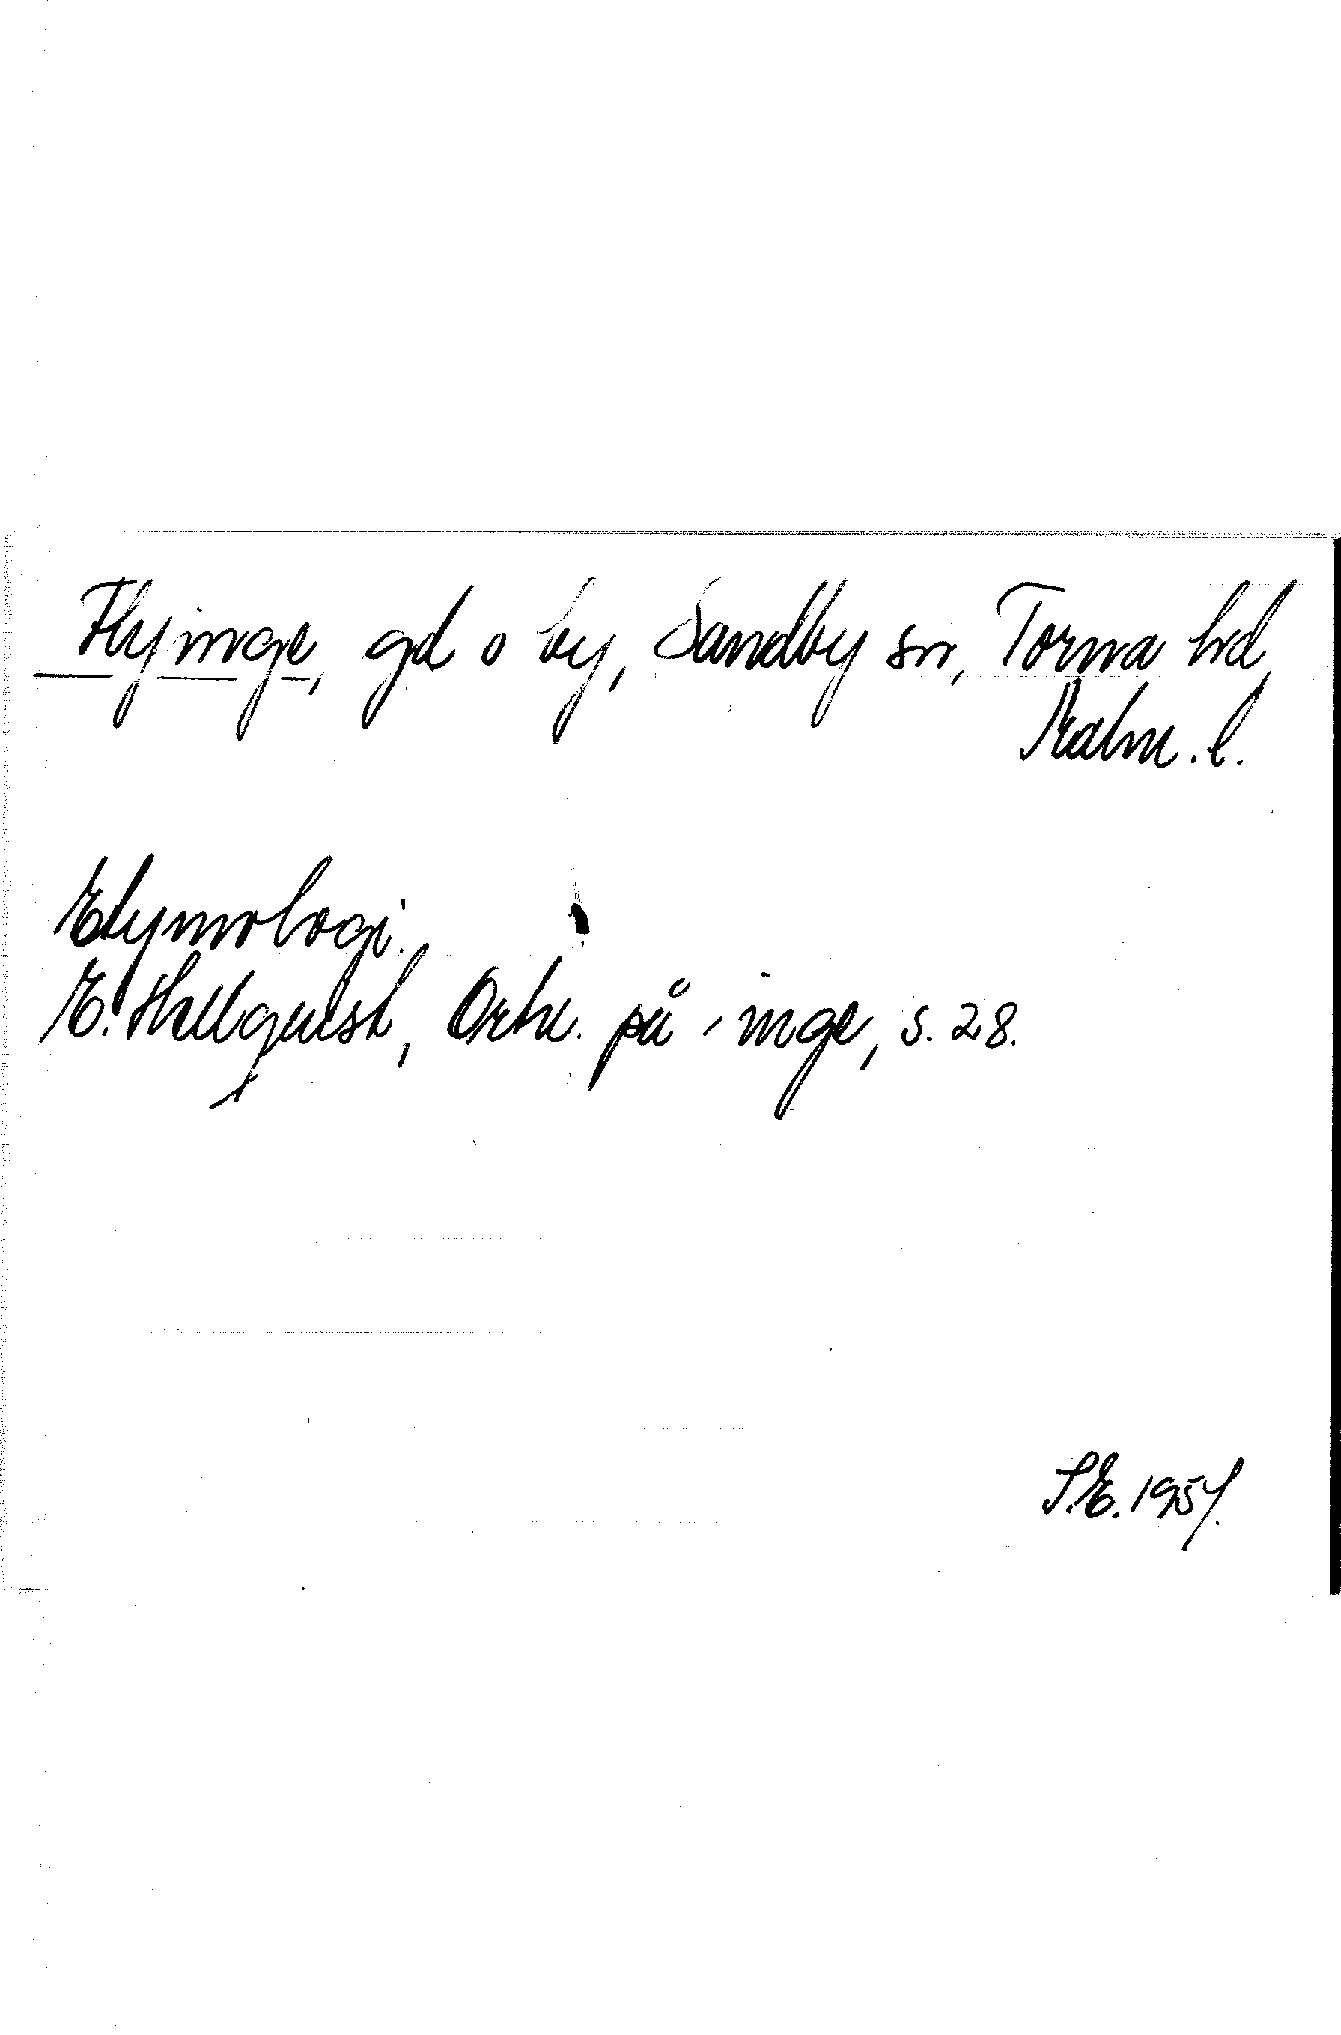 Flyinge, gd o by, Sandby sn, Torna hd,
Malm. l.
Etymologi.
E. Hellquist, Ortn. på -inge, s. 28.
S.E. 1957.